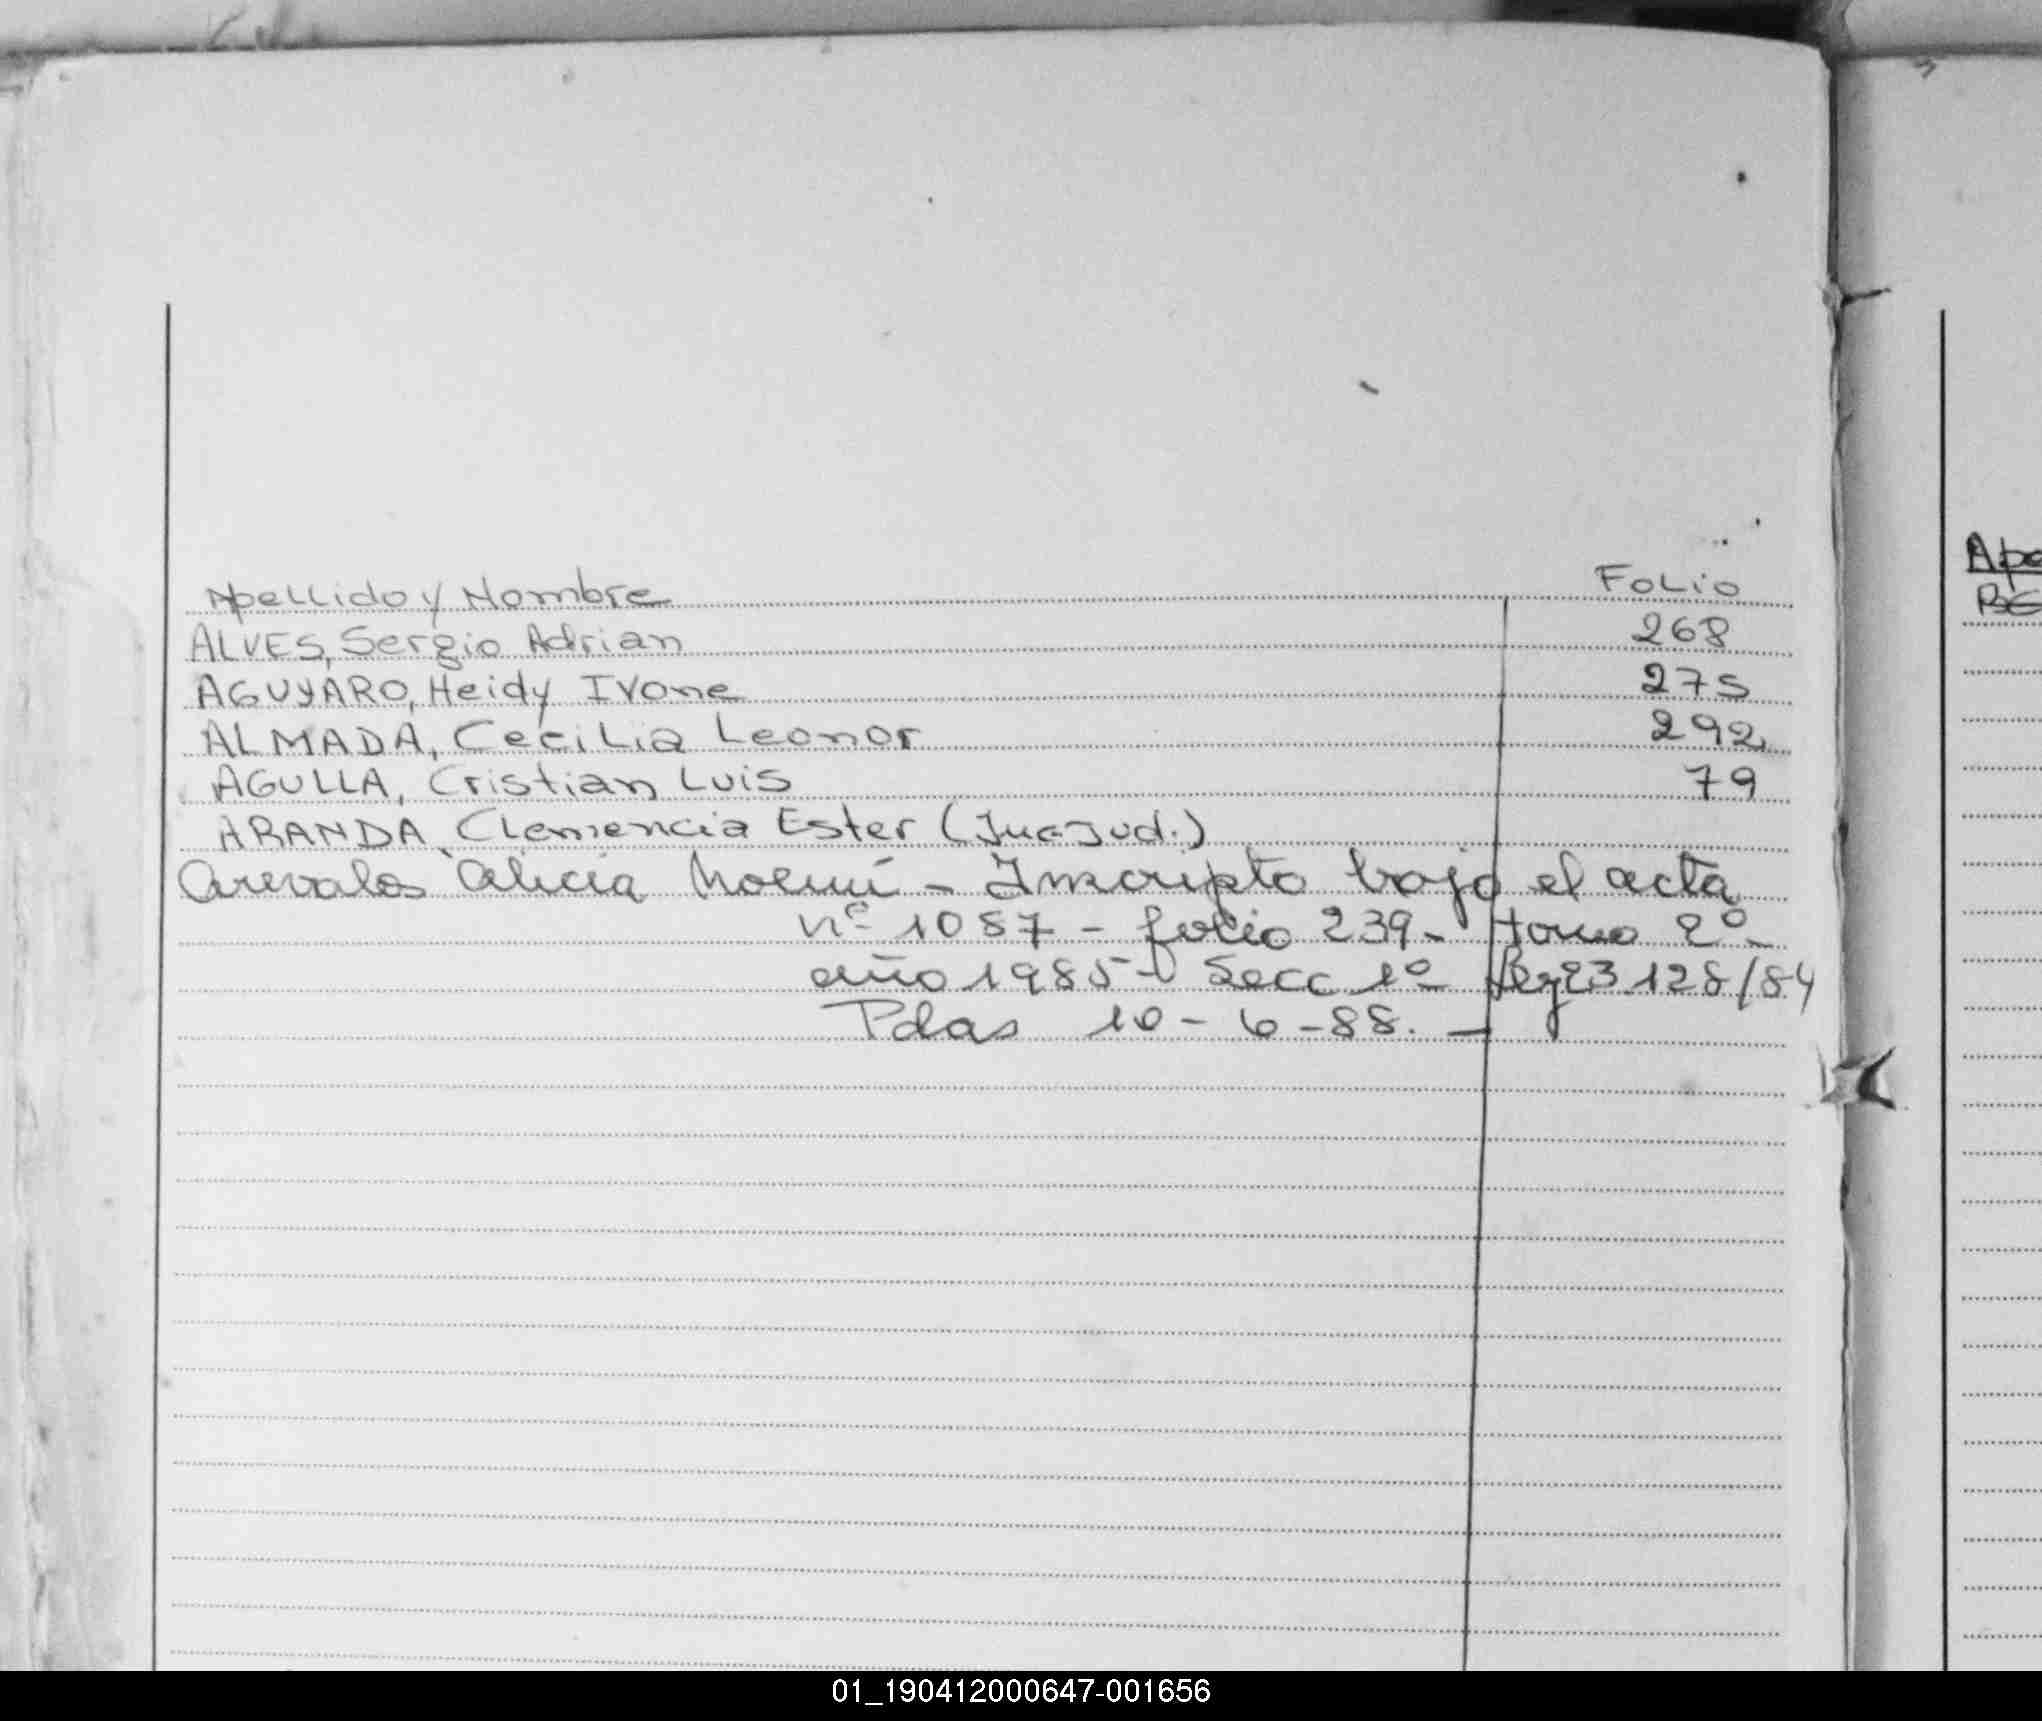 Apellido y Nombre Folio
ALVES, Sergio Adrian 268
AGUYARO, Heidy Ivone 275
ALMADA, Cecilia Leonor 292
AGULLA, Cristian Luis 79
ARANDA, Clemencia Ester (Jud.)
Arevalos Alicia Noemí - Inscripto bajo el acta
nº 1087 - folio 239- tomo 2º-
año 1985- Secc 1º 128/84
Pdas 10-6-88.-
Ape
BE
01_190412000647-001656